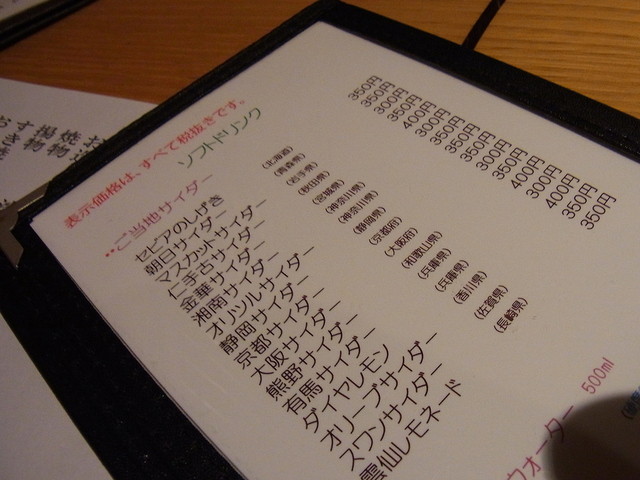 表示価格は、すべて税抜きです。
ソフトドリンク
••ご当地サイダー
セピアのしげき (北海道) 350円
朝日サイダー (青森県) 350円
マスカットサイダー (岩手県) 300円
仁手古サイダー (秋田県) 400円
金華サイダー (宮城県) 350円
湘南サイダー (神奈川県) 350円
オリツルサイダー (神奈川県) 350円
静岡サイダー (静岡県) 350円
京都サイダー (京都府) 300円
大阪サイダー (大阪府) 350円
熊野サイダー (和歌山県) 350円
有馬サイダー (兵庫県) 400円
ダイヤレモン (兵庫県) 300円
オリーブサイダー (香川県) 400円
スワンサイダー (佐賀県) 350円
雲仙レモネード (長崎県) 350円
ウォーター 500ml
焼物
揚物